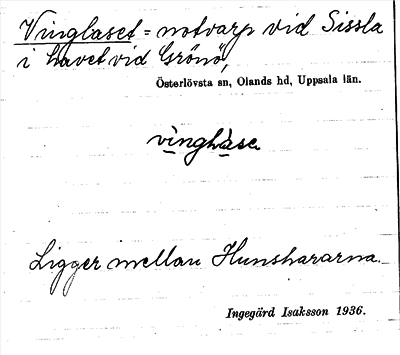 Vinglaset = notvarp vid Sissla
i havet vid Grönö,
Österlövsta sn, Olands hd, Uppsala län.
Ligger mellan Hunshararna.
Ingegärd Isaksson 1936.